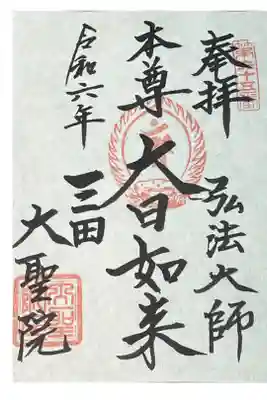 奉拝
弘法大師
本尊
大日如来
令和六年
三田
大聖院